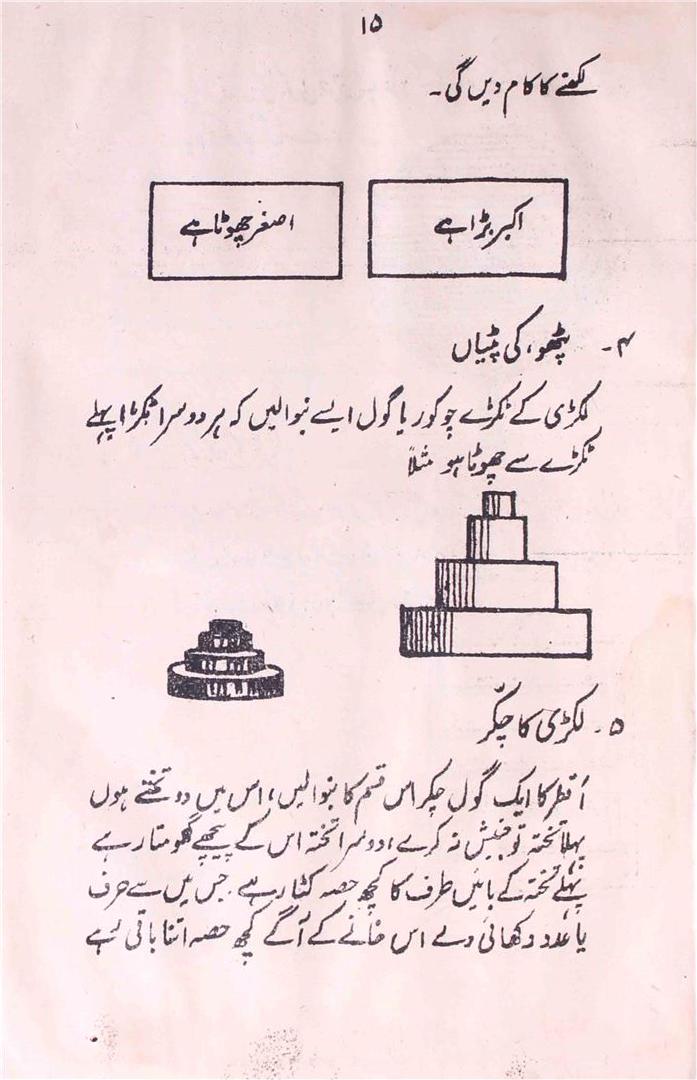 ۱۵
لکھنے کا کام دیں گی۔
اکبر بڑا ہے
اصغر چھوٹا ہے
۴۔ پٹھو، کی پٹیاں
لکڑی کے ٹکڑے چوکور یا گول ایسے بنوالیں کہ ہر دوسرا ٹکڑا پہلے
ٹکڑے سے چھوٹا ہو مثلاً
۵۔ لکڑی کا چکّر
قطر کا ایک گول چکر اس قسم کا بنوالیں، اس میں دو تختے ہوں
پہلا تختہ تو جنبش نہ کرے اور دوسرا تختہ اس کے پیچھے گھومتا رہے
پہلے تختہ کے بائیں طرف کا کچھ حصہ کٹا رہے۔ جس میں سے حرف
یا عدد دکھائی دے اس خانے کے آگے کچھ حصہ اتنا باقی رہے